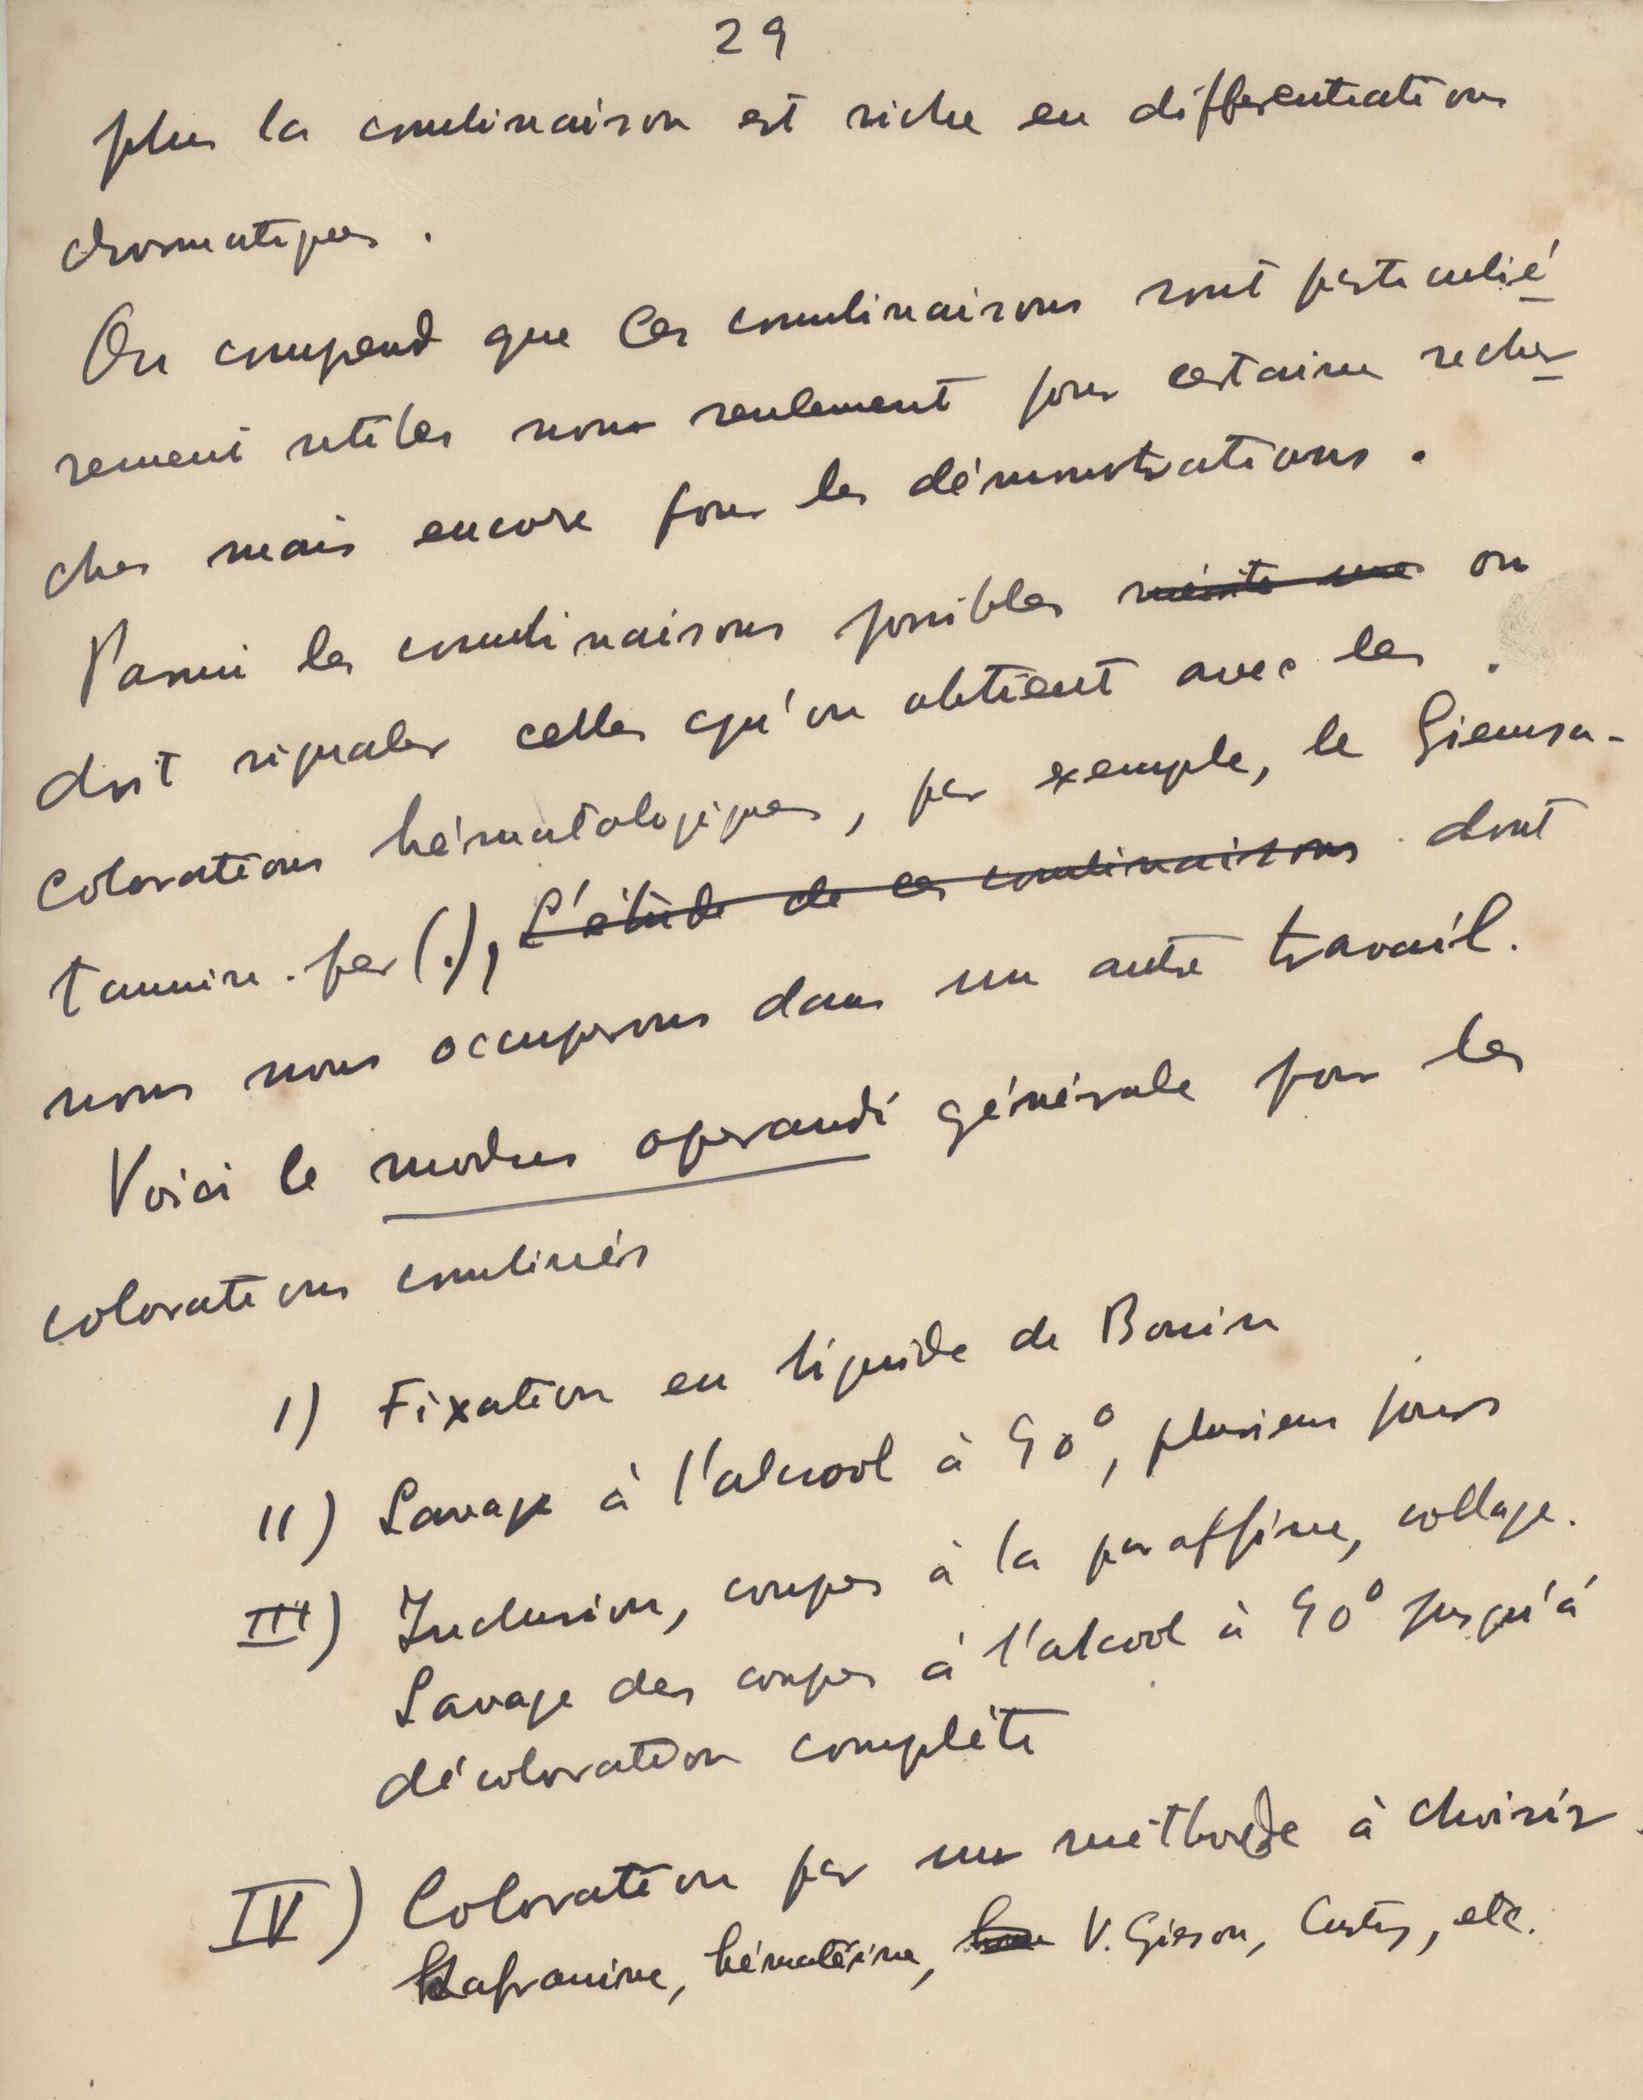 29
plus la combinaison est riche en differentiations
chromatiques.
On comprend que ces combinaisons sont particulié
rement utiles non seulement pour certaines recher
ches mais encore pour les démonstrations.
Parmi les combinaisons possibles mérite une on
doit signaler celles qu'on obtient avec les
colorations hématologiques, par exemple, le Giemsa-
tannin-fer (.), L'étude de ces combinaisons dont
nous nous occuperons dans un autre travail.
Voici le modus operandi générale pour les
colorations combinés
I) Fixation en liquide de Bouin
II) Lavage à l'alcool à 90°, plusieurs jours
III) Inclusion, coupes à la paraffine, collage.
Lavage des coupes à l'alcool à 90° jusqu'á
décoloration complète
IV) Coloration par un méthode à choisir
Safranine, hématéine, V. Gieson, Castroy, etc.